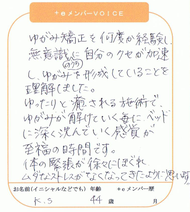 +eメンバーVOICE
ゆがみ矯正を何度か経験し
無意識に自分のクセが加速
ゆがみを形成していることを
理解しました。
ゆったりと癒される施術で、
ゆがみが解けていく毎にベッド
に深く沈んでいく感覚が
至福の時間です。
体の緊張が徐々にほぐれ
ムダなストレスがなくなってきたように思い
お名前(イニシャルなどでも) 年齢 +eメンバー歴
K.S 44歳 月